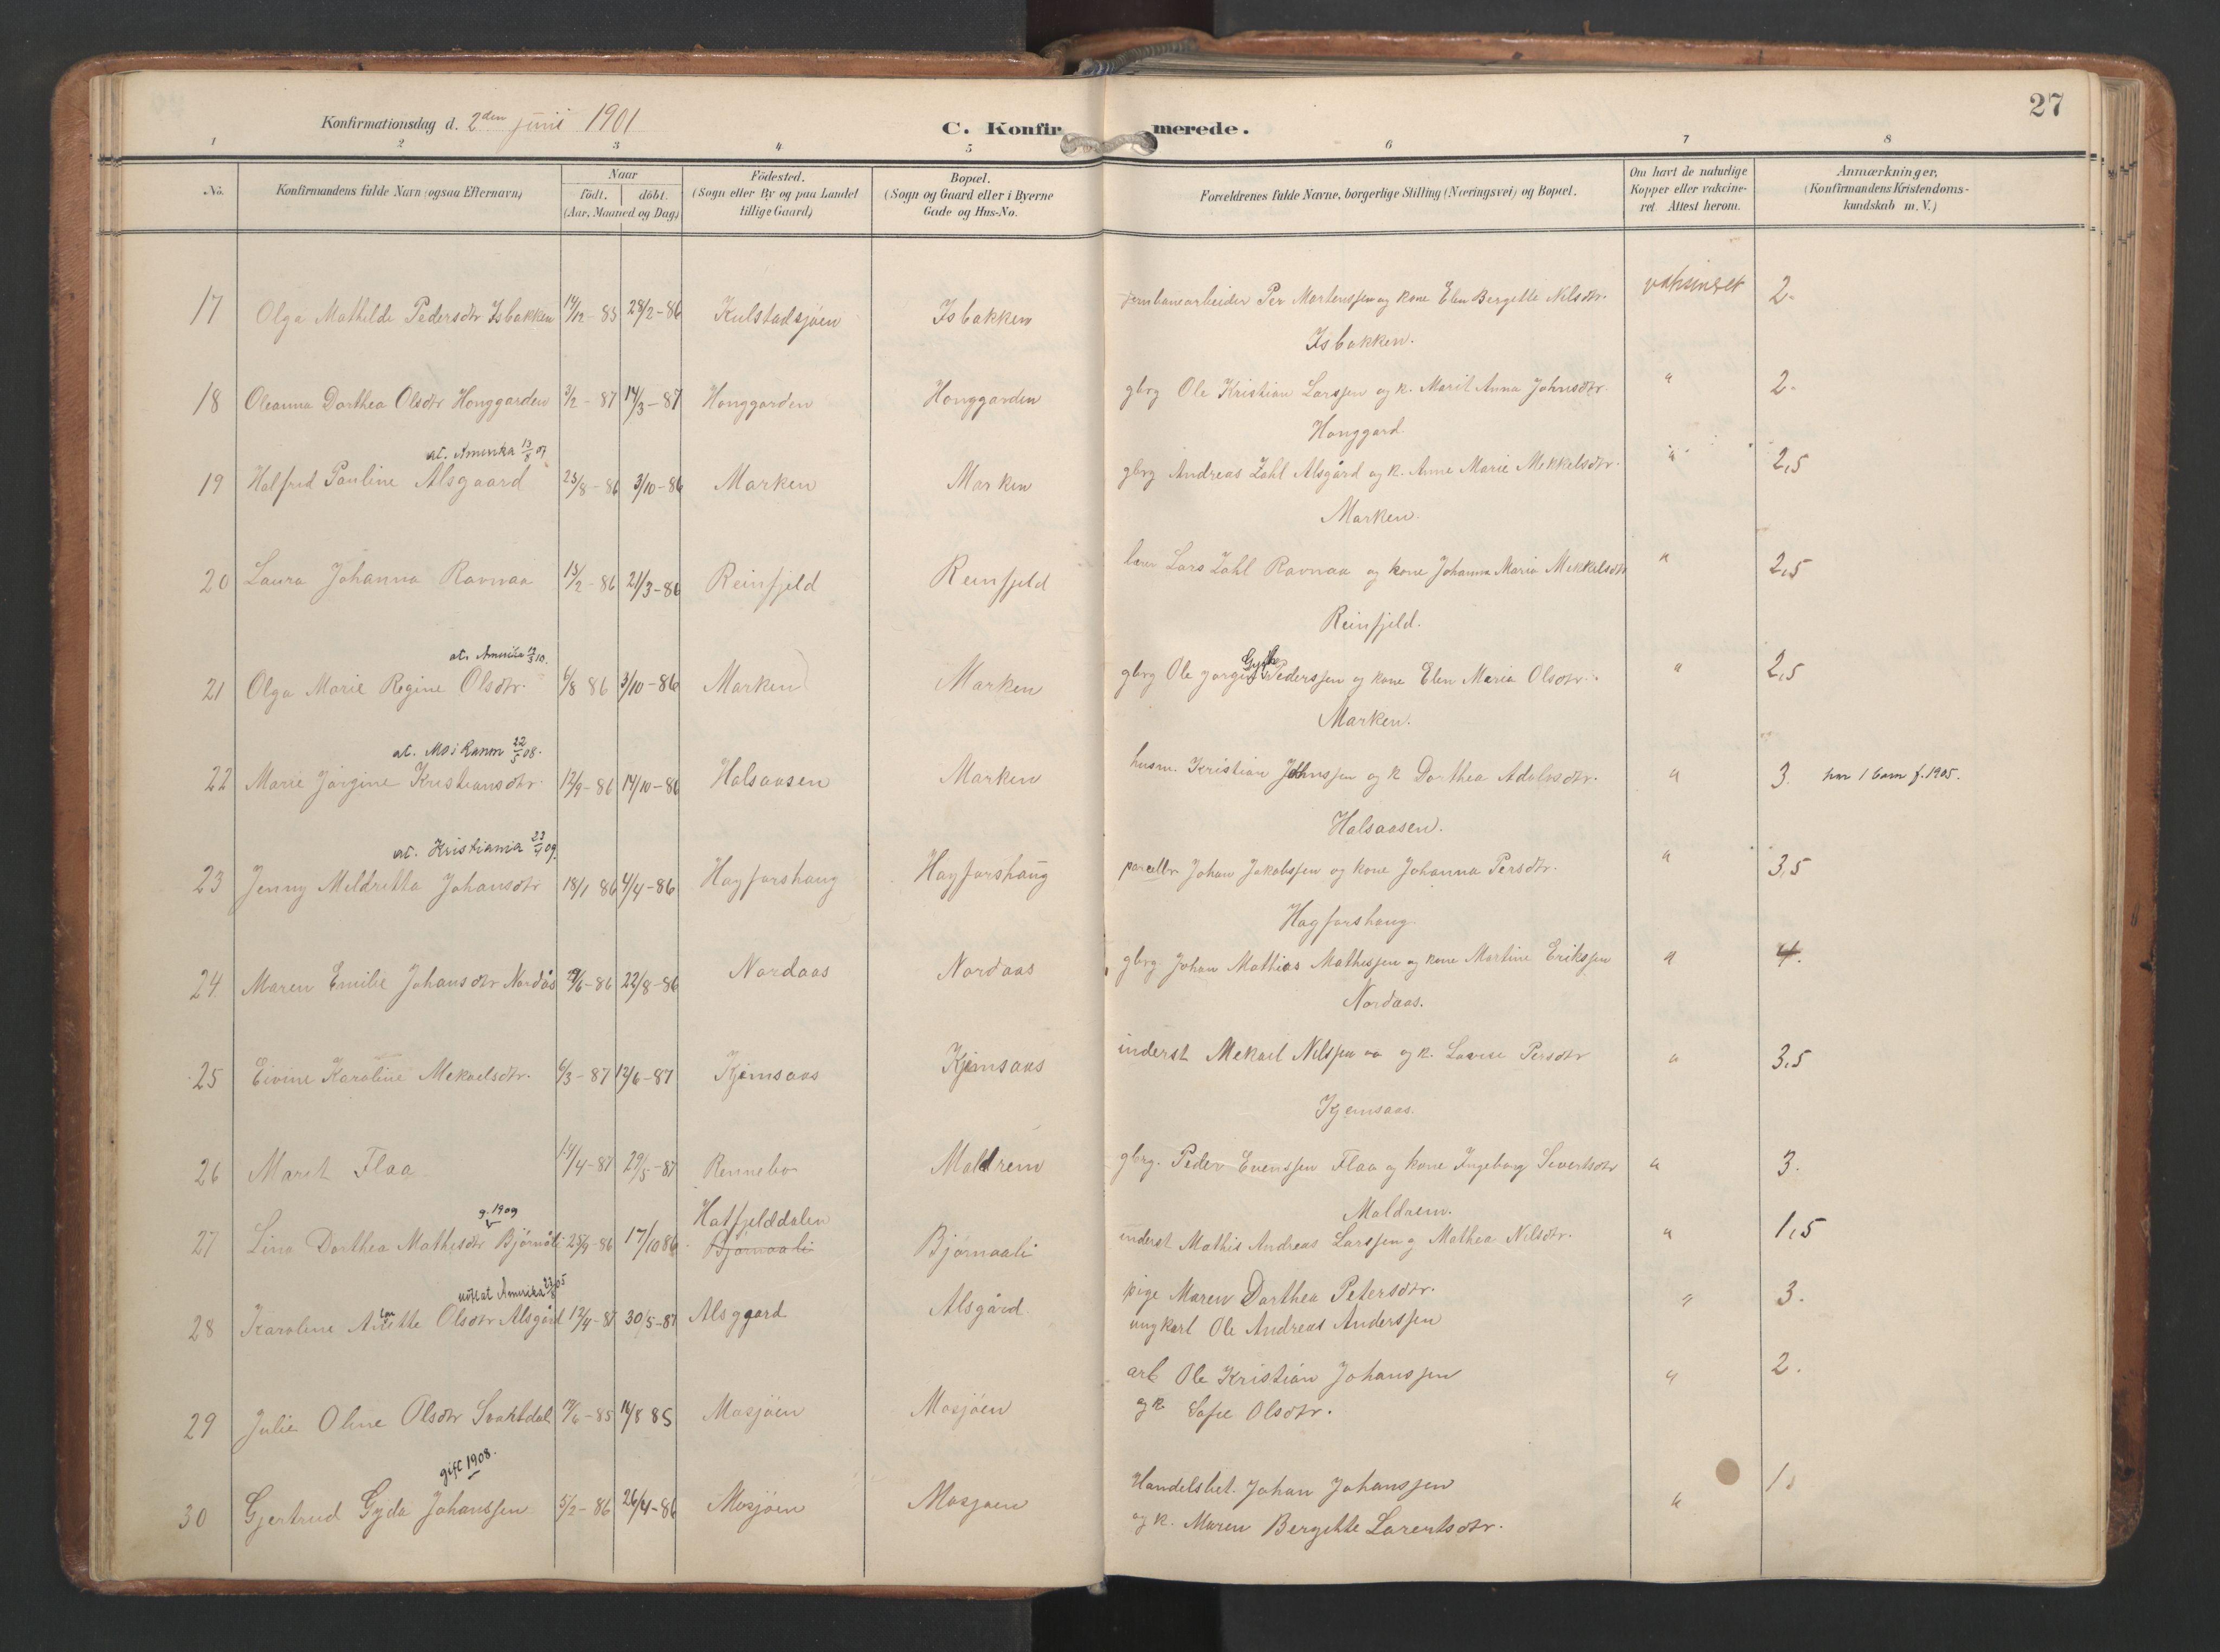 27
Konfirmationsdag d. 2den juni 1901
C. Konfirmerede.
1 2 3 4 5 6 7 8
No.
Konfirmandens fulde Navn (ogsaa Efternavn)
Naar
födt. döbt.
(Aar, Maaned og Dag)
Födested.
(Sogn eller By og paa Landet
tillige Gaard)
Bopæl.
(Sogn og Gaard eller i Byerne
Gade og Hus-No.
Forældrenes fulde Navne, borgerlige Stilling (Næringsvei) og Bopæl.
Om havt de naturlige
Kopper eller vakcine-
ret. Attest herom.
Anmærkninger,
(Konfirmandens Kristendoms-
kundskab m. V.)
17 Olga Mathilde Pedersdtr Isbakken 14/12-85 28/2-86 Kulstadsjøen Isbakken Jernbanearbeider Per Mortenssen og kone Elen Bergette Nilsdtr. vaksineret 2.
Isbakken.
18 Oleanna Dorthea Olsdtr Honggarden 3/2-87 14/3-87 Honggarden Honggarden gbrg Ole Kristian Larssen og k. Marit Anna Johnsdtr. " 2.
Honggard.
at. Amerika 13/8 07
19 Halfrid Pauline Alsgaard 23/8-86 3/10-86 Marken Marken gbrg Andreas Zahl Alsgård og k. Anne Marie Mekkelsdtr. " 2,5
Marken.
20 Laura Johanna Ravnaa 13/2-86 21/3-86 Reinfjeld Reinfjeld lærer Lars Zahl Ravnaa og kone Johanna Maria Mekkelsdtr " 2,5
Reinfjeld.
at. Amerika 12/3 10.
21 Olga Marie Regine Olsdtr. 6/8 86 3/10-86 Marken Marken gbrg Ole Jørgen Pederssen og kone Elen Maria Olsdtr. " 2,5
Marken.
at. Mo i Ranen 22/5 08.
22 Marie Jørgine Kristiansdtr 12/9-86 14/10-86 Halsaasen Marken husm. Kristian Johnssen og k Dorthea Adolvsdtr. " 3. har 1 barn f. 1905.
Halsaasen.
at. Kristiania 22/4 09.
23 Jenny Meldritta Johansdtr 18/1 86 4/4-86 Hagforshaug Hagforshaug parcellbr Johan Jakobssen og kone Johanna Persdtr. " 3,5
Hagforshaug.
24 Maren Emilie Johansdtr Nordås 29/6-86 22/8-86 Nordaas Nordaas gbrg. Johan Mathias Mathissen og kone Martine Erikssen " 4.
Nordaas.
25 Eivine Karoline Mekaelsdtr. 6/3-87 12/6-87 Kjemsaas Kjemsaas inderst Mekael Nilssen og k. Lovise Persdtr " 3,5
Kjemsaas.
26 Marit Flaa 14/4-87 29/5-87 Rennebo Maldrem gbrg. Peder Evenssen Flaa og kone Ingeborg Sivertsdtr " 3.
Maldaem.
g. 1909
27 Lina Dorthea Mathisdtr Bjørnåli 28/9-86 17/10 86 Hatfjelddalen Bjørnaali Bjørnaali inderst Mathis Andreas Larssen og Mathea Nilsdtr. " 1,5
at Amerika
28 Karoline Anette Olsdtr Alsgård 12/4-87 30/5-87 Alsgaard Alsgård pige Maren Dorthea Petersdtr. " 3.
ungkarl Ole Andreas Anderssen
29 Julie Oline Olsdtr Svartdal 19/6-85 16/8 85 Mosjøen Mosjøen arb Ole Kristian Johanssen " 2.
og k Sofie Olsdtr.
gift 1908.
30 Gjertrud Gyda Johanssen 5/2-86 26/4-86 Mosjøen Mosjøen Handelsbet. Johan Johanssen " 1.
og k. Maren Bergette Larentsdtr.